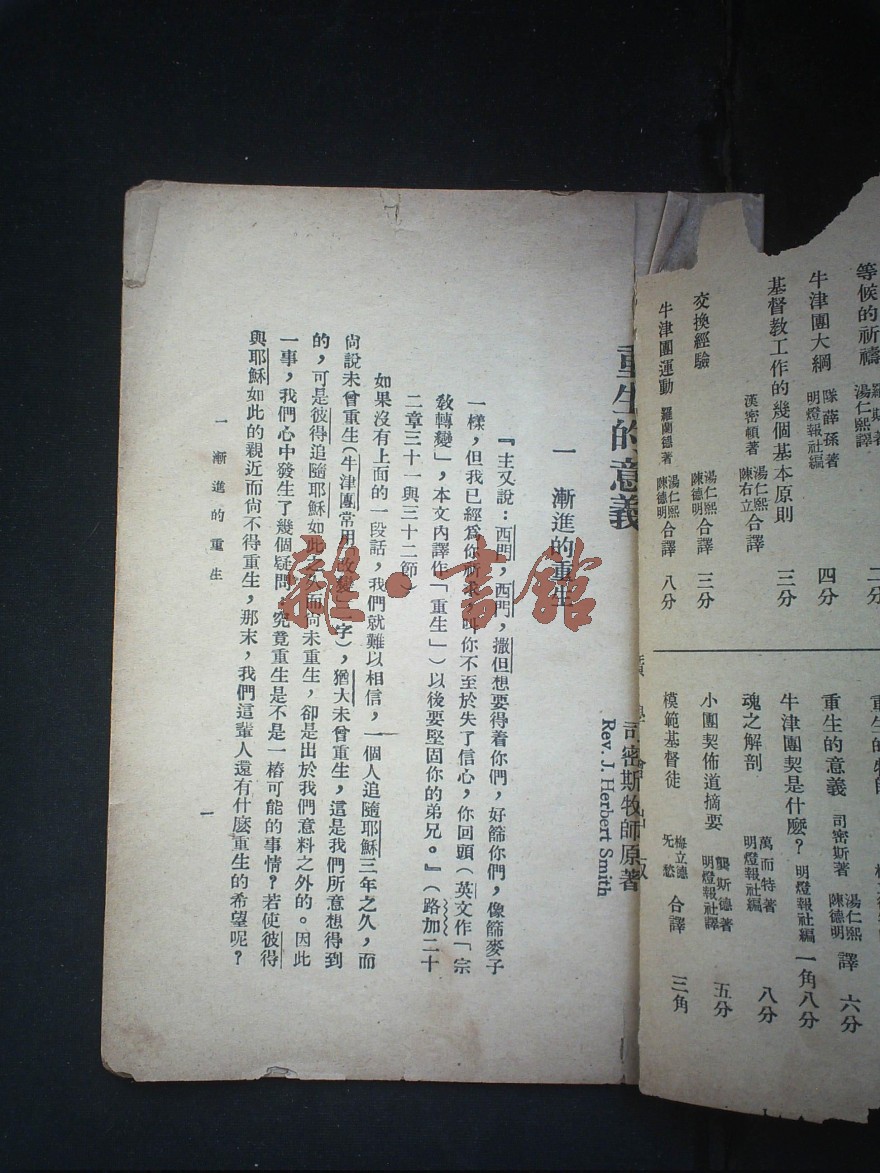 等候的祈禱
湯仁熙譯
二分
牛津團大綱
隊薛孫著
明燈報社編
四分
基督教工作的幾個基本原則
漢密頓著
湯仁熙
陳右立
合譯
三分
交換經驗
湯仁熙
陳德明
合譯
三分
牛津團運動
羅蘭德著
湯仁熙
陳德明
合譯
八分
重生的
重生的意義
司密斯著
湯仁熙
陳德明
譯
六分
牛津團契是什麼?
明燈報社編
一角八分
魂之解剖
萬而特著
明燈報社編
八分
小團契佈道摘要
龔斯德著
明燈報社譯
五分
模範基督徒
梅立德
旡愁
合譯
三角
重生的意義
司密斯牧師原著
Rev. J. Herbert Smith
一 漸進的重生
『主又說:西門,西門,撒但想要得着你們,好篩你們,像篩麥子
一樣,但我已經爲你祈求,叫你不至於失了信心,你回頭(英文作「宗
教轉變」,本文內譯作「重生」)以後要堅固你的弟兄。』(路加二十
二章三十一與三十二節)
如果沒有上面的一段話,我們就難以相信,一個人追隨耶穌三年之久,而
尙說未曾重生(牛津團常用「改變」二字),猶大未曾重生,這是我們所意想得到
的,可是彼得追隨耶穌如此之久而尙未重生,卻是出於我們意料之外的。因此
一事,我們心中發生了幾個疑問,究竟重生是不是一樁可能的事情?若使彼得
與耶穌如此的親近而尙不得重生,那末,我們這輩人還有什麼重生的希望呢?
一 漸進的重生
一
雜·書館